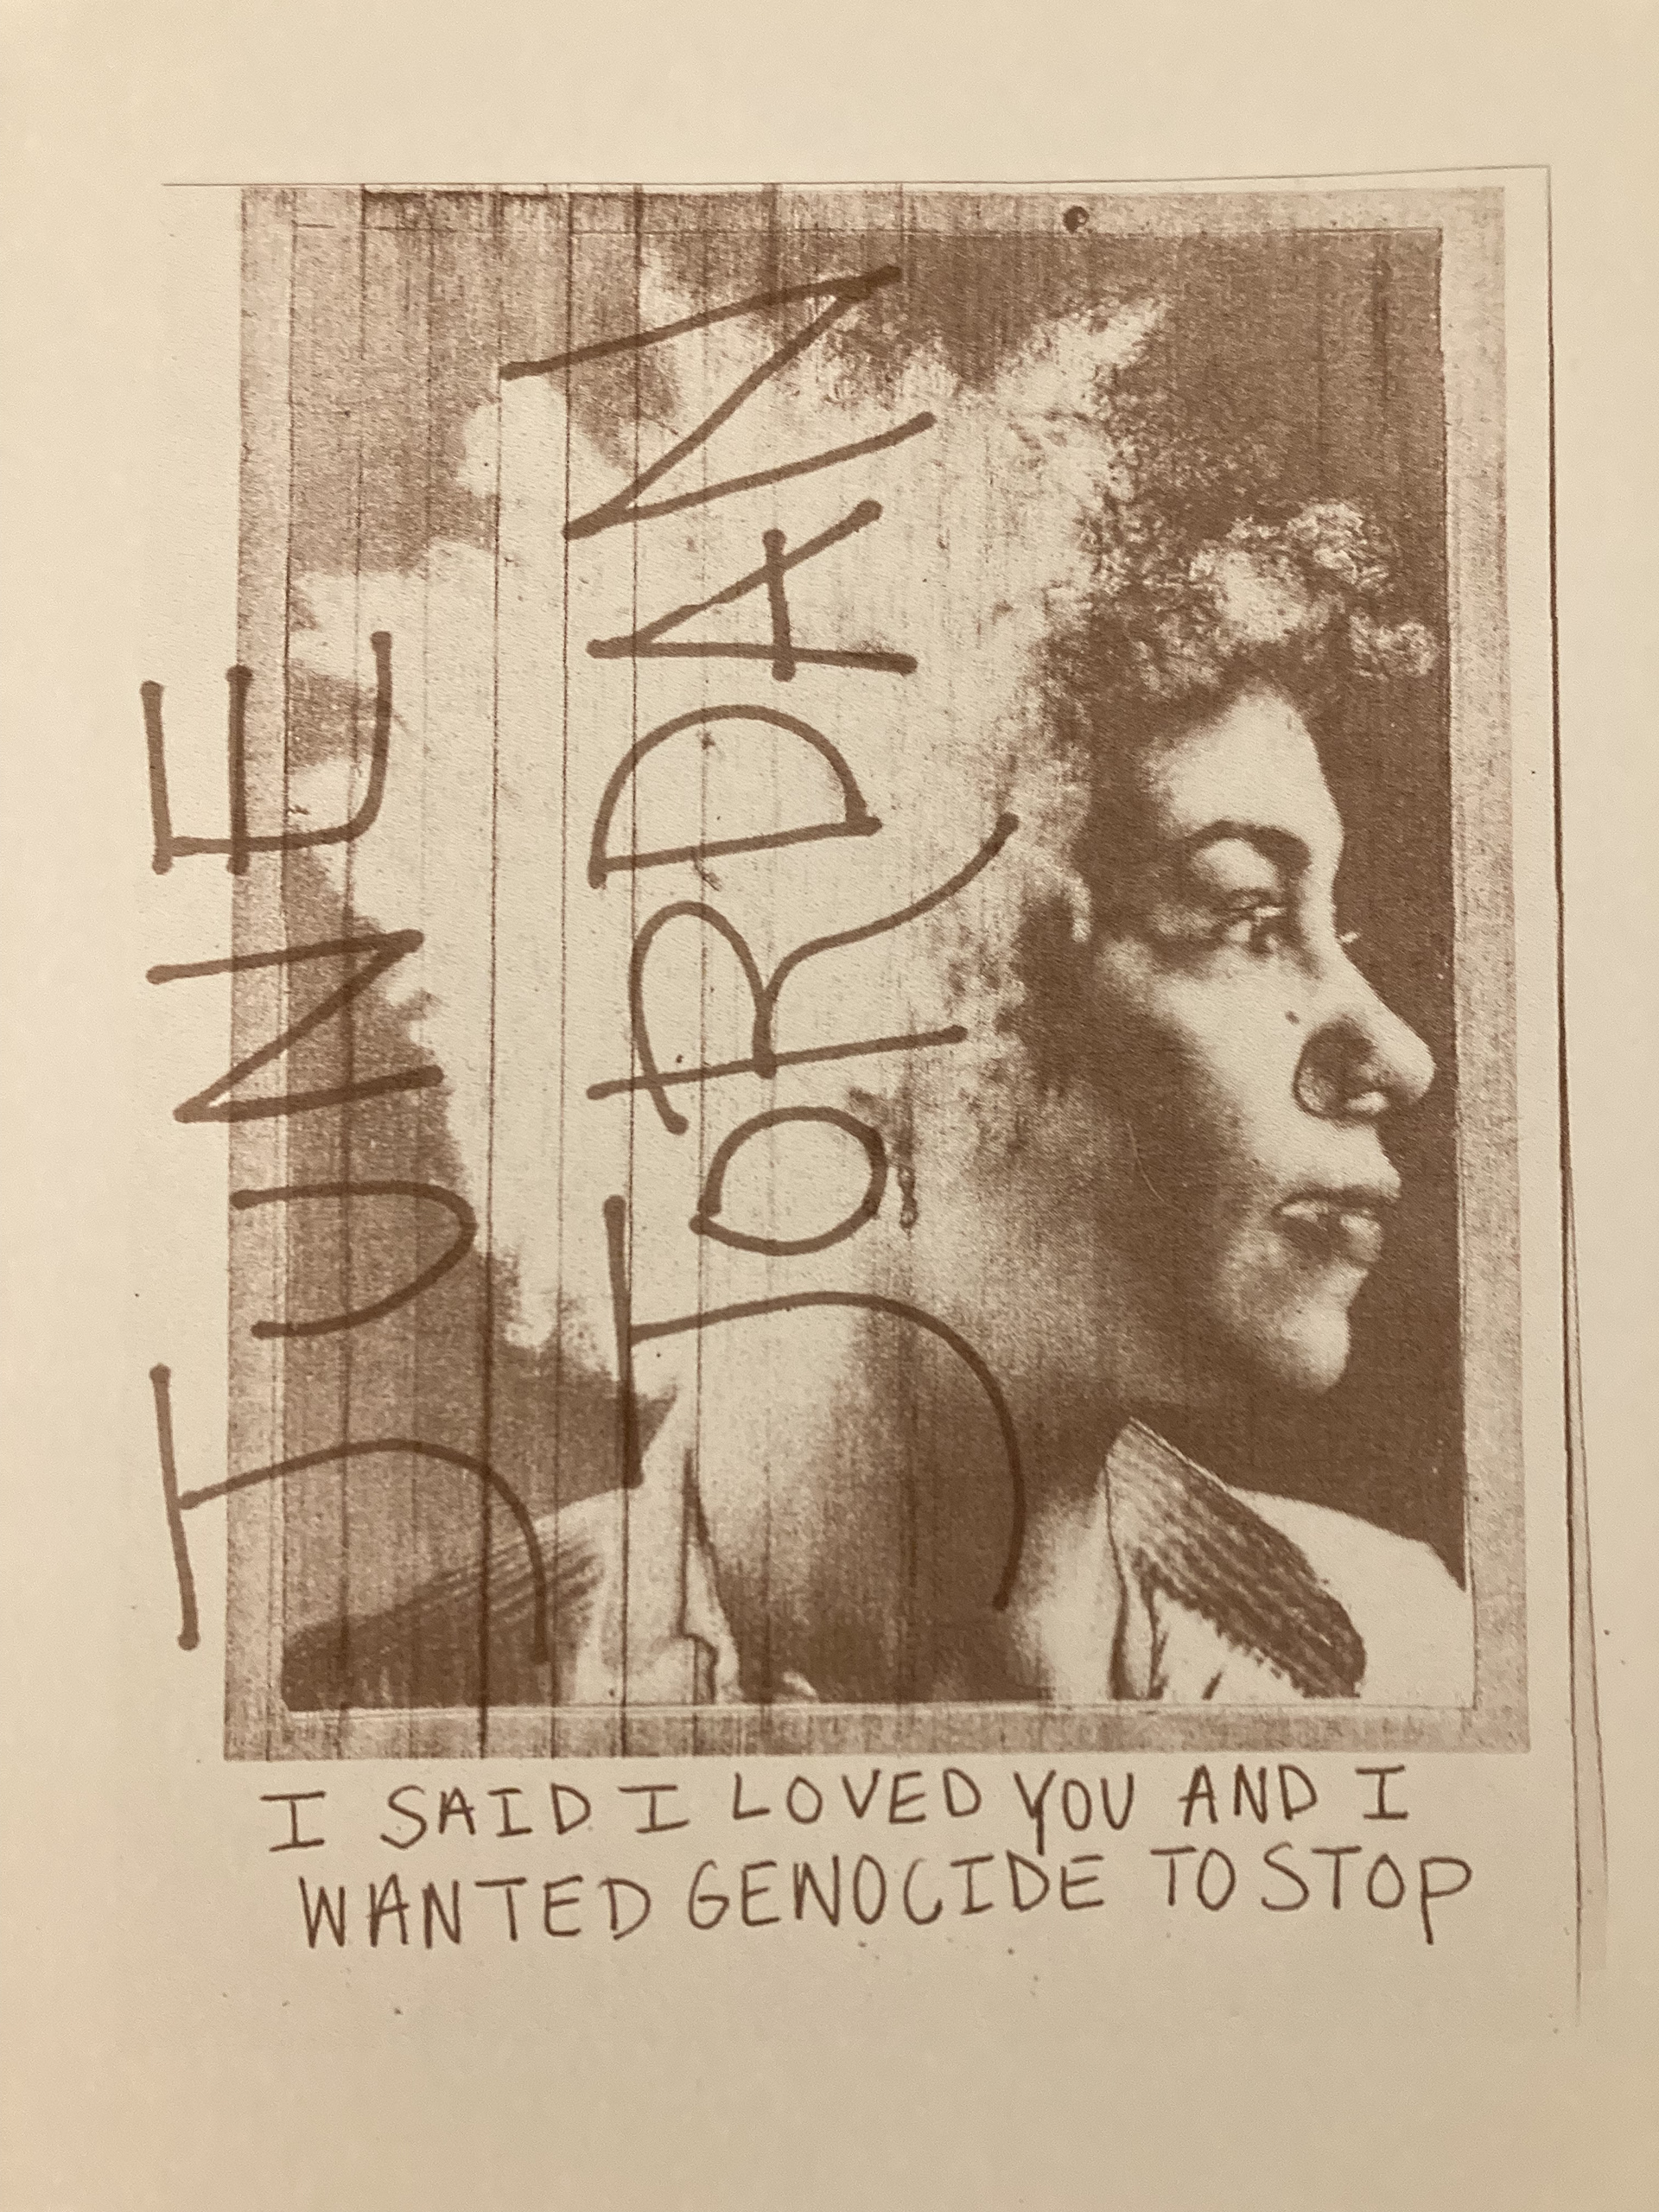 JUNE
JORDAN
I SAID I LOVED YOU AND I
WANTED GENOCIDE TO STOP